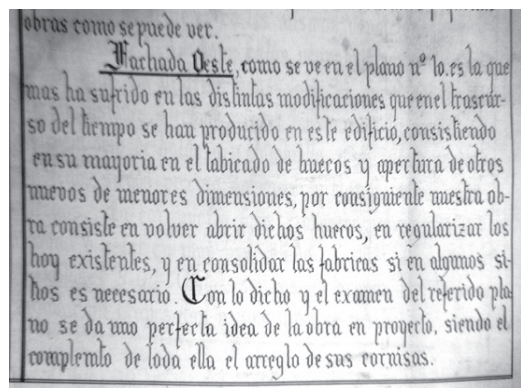 obras como se puede ver.
Fachada Oeste, como se ve en el plano nº 10. es la que
mas ha sufrido en las distintas modificaciones que en el trascur-
so del tiempo se han producido en este edificio, consistiendo
en su mayoria en el tabicado de huecos y apertura de otros
nuevos de menores dimensiones, por consiguiente nuestra ob-
ra consiste en volver abrir dichos huecos, en regularizar los
hoy existentes, y en consolidar las fabricas si en algunos si-
tios es necesario. Con lo dicho y el examen del referido pla-
no se da uno perfecta idea de la obra en proyecto, siendo el
complemto de toda ella el arreglo de sus cornisas.